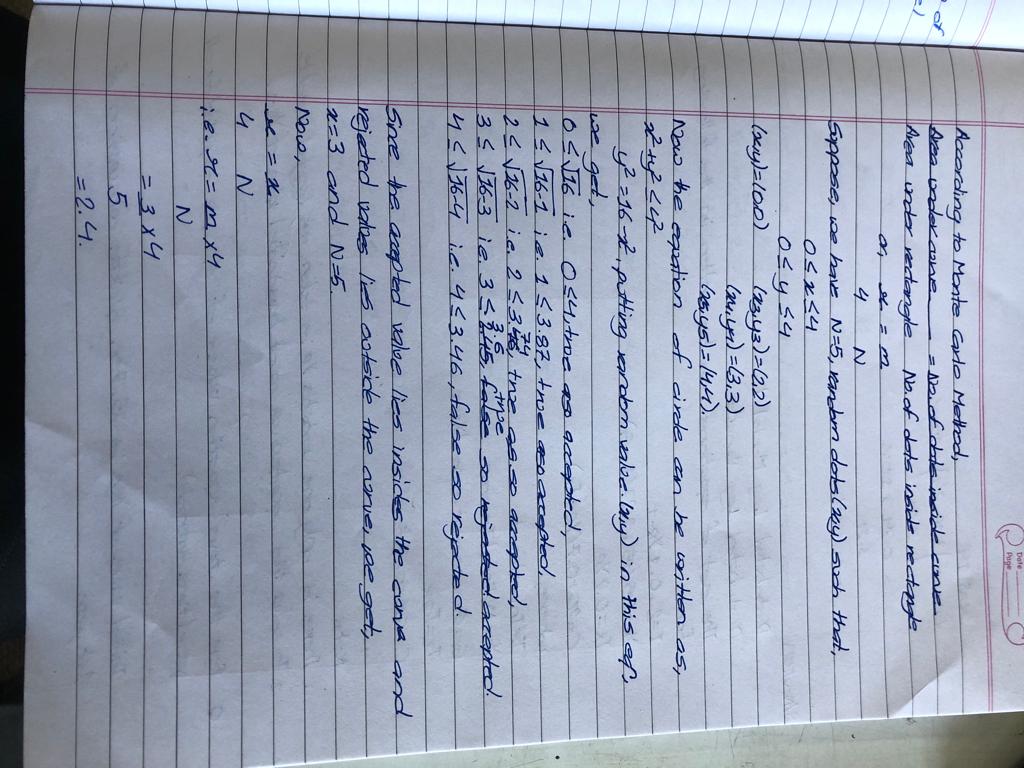 of
Date
Page
According to Monte Carlo Method,
Area under curve = No. of dots inside curve
Area under rectangle No. of dots inside rectangle
or, x = m
4 N
Suppose, we have N=5, random dots (x,y) such that,
0 ≤ x ≤ 4
0 ≤ y ≤ 4
(x,y)=(0,0) (x3,y3)=(2,2)
(x4,y4)=(3,3)
(x5,y5)=(4,4).
Now the equation of circle can be written as,
x²+y² < 4²
y²=16-x², putting random value (x,y) in this eqn,
we get,
0 ≤ √16 i.e. 0 ≤ 4, true so accepted,
1 ≤ √16-1 i.e. 1 ≤ 3.87, true so accepted,
2 ≤ √16-2 i.e. 2 ≤ 3.74, true so accepted,
3 ≤ √16-3 i.e. 3 ≤ 3.6, true so accepted
4 ≤ √16-4 i.e. 4 ≤ 3.46, false so rejected
Since the accepted value lies insides the curve and
rejected values lies outside the curve, we get,
x=3 and N=5.
Now,
x = x
4 N
i.e. x = m x 4
N
= 3 x 4
5
= 2.4.